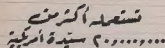 تستعمله أكثر من
٢٠٠٠٠٠٠٠ سيّدة أمريكية